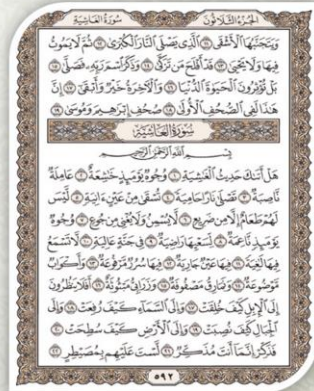 الجزء الثلاثون
سورة الغاشية
وَيَتَجَنَّبُهَا ٱلْأَشْقَى ١١ ٱلَّذِى يَصْلَى ٱلنَّارَ ٱلْكُبْرَىٰ ١٢ ثُمَّ لَا يَمُوتُ
فِيهَا وَلَا يَحْيَىٰ ١٣ قَدْ أَفْلَحَ مَن تَزَكَّىٰ ١٤ وَذَكَرَ ٱسْمَ رَبِّهِۦ فَصَلَّىٰ ١٥
بَلْ تُؤْثِرُونَ ٱلْحَيَوٰةَ ٱلدُّنْيَا ١٦ وَٱلْءَاخِرَةُ خَيْرٌ وَأَبْقَىٰٓ ١٧ إِنَّ
هَٰذَا لَفِى ٱلصُّحُفِ ٱلْأُولَىٰ ١٨ صُحُفِ إِبْرَٰهِيمَ وَمُوسَىٰ ١٩
سورة الغاشية
بِسْمِ ٱللَّهِ ٱلرَّحْمَٰنِ ٱلرَّحِيمِ
هَلْ أَتَىٰكَ حَدِيثُ ٱلْغَٰشِيَةِ ١ وُجُوهٌ يَوْمَئِذٍ خَٰشِعَةٌ ٢ عَامِلَةٌ
نَّاصِبَةٌ ٣ تَصْلَىٰ نَارًا حَامِيَةً ٤ تُسْقَىٰ مِنْ عَيْنٍ ءَانِيَةٍ ٥ لَّيْسَ
لَهُمْ طَعَامٌ إِلَّا مِن ضَرِيعٍ ٦ لَّا يُسْمِنُ وَلَا يُغْنِى مِن جُوعٍ ٧ وُجُوهٌ
يَوْمَئِذٍ نَّاعِمَةٌ ٨ لِّسَعْيِهَا رَاضِيَةٌ ٩ فِى جَنَّةٍ عَالِيَةٍ ١٠ لَّا تَسْمَعُ
فِيهَا لَٰغِيَةً ١١ فِيهَا عَيْنٌ جَارِيَةٌ ١٢ فِيهَا سُرُرٌ مَّرْفُوعَةٌ ١٣ وَأَكْوَابٌ
مَّوْضُوعَةٌ ١٤ وَنَمَارِقُ مَصْفُوفَةٌ ١٥ وَزَرَابِىُّ مَبْثُوثَةٌ ١٦ أَفَلَا يَنظُرُونَ
إِلَى ٱلْإِبِلِ كَيْفَ خُلِقَتْ ١٧ وَإِلَى ٱلسَّمَآءِ كَيْفَ رُفِعَتْ ١٨ وَإِلَى
ٱلْجِبَالِ كَيْفَ نُصِبَتْ ١٩ وَإِلَى ٱلْأَرْضِ كَيْفَ سُطِحَتْ ٢٠
فَذَكِّرْ إِنَّمَآ أَنتَ مُذَكِّرٌ ٢١ لَّسْتَ عَلَيْهِم بِمُصَيْطِرٍ ٢٢
٥٩٢